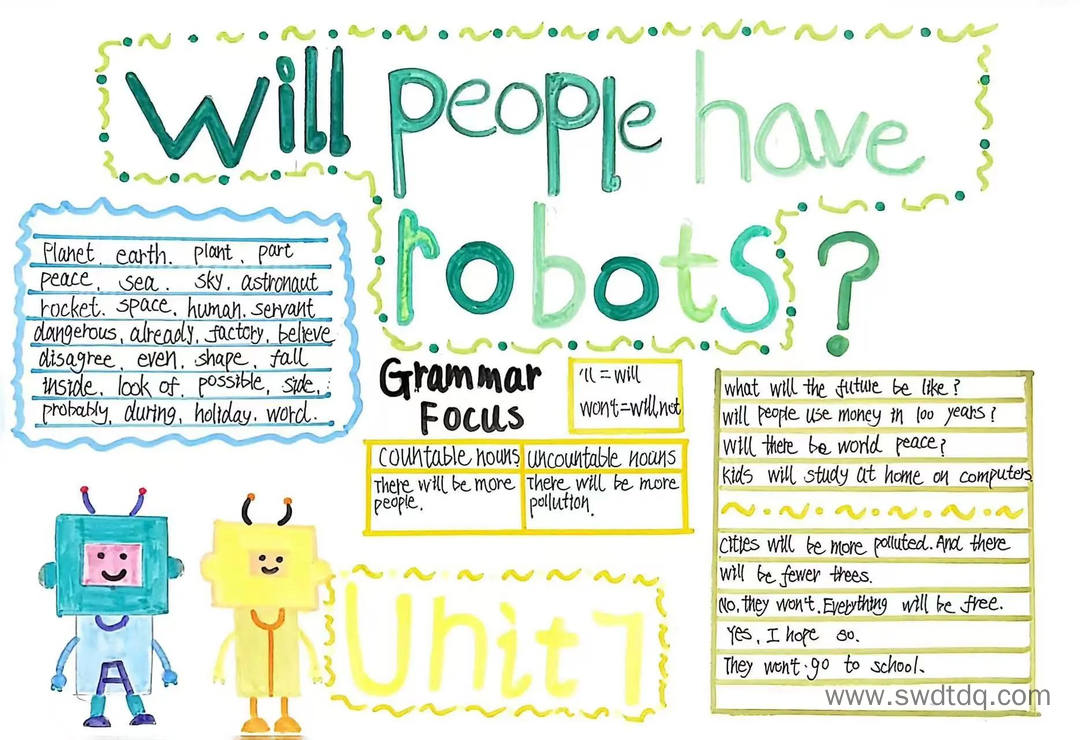 Will people have
robots?
Planet, earth, plant, part
peace, sea, sky, astronaut
rocket, space, human, servant
dangerous, already, factory, believe
disagree, even, shape, fall
inside, look of, possible, side,
probably, during, holiday, word.
Grammar
Focus
'll = will
won't=will not
countable nouns uncountable nouns
There will be more
people.
There will be more
pollution.
Unit 7
what will the future be like?
will people use money in 100 years?
will there be world peace?
kids will study at home on computers
cities will be more polluted. And there
will be fewer trees.
No, they won't. Everything will be free.
Yes, I hope so.
They won't go to school.
A
www.swdtdq.com